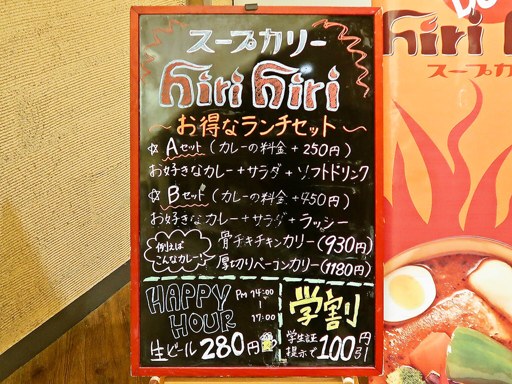 スープカリー
hiri hiri
~お得なランチセット~
☆Aセット(カレーの料金+250円)
お好きなカレー+サラダ+ソフトドリンク
☆Bセット(カレーの料金+450円)
お好きなカレー+サラダ+ラッシー
例えば
こんなカレー!
骨付きチキンカリー(930円)
厚切りベーコンカリー(1180円)
HAPPY
HOUR
PM 14:00
|
17:00
生ビール 280円
学割
学生証
提示で100円引
hiri
スープカ